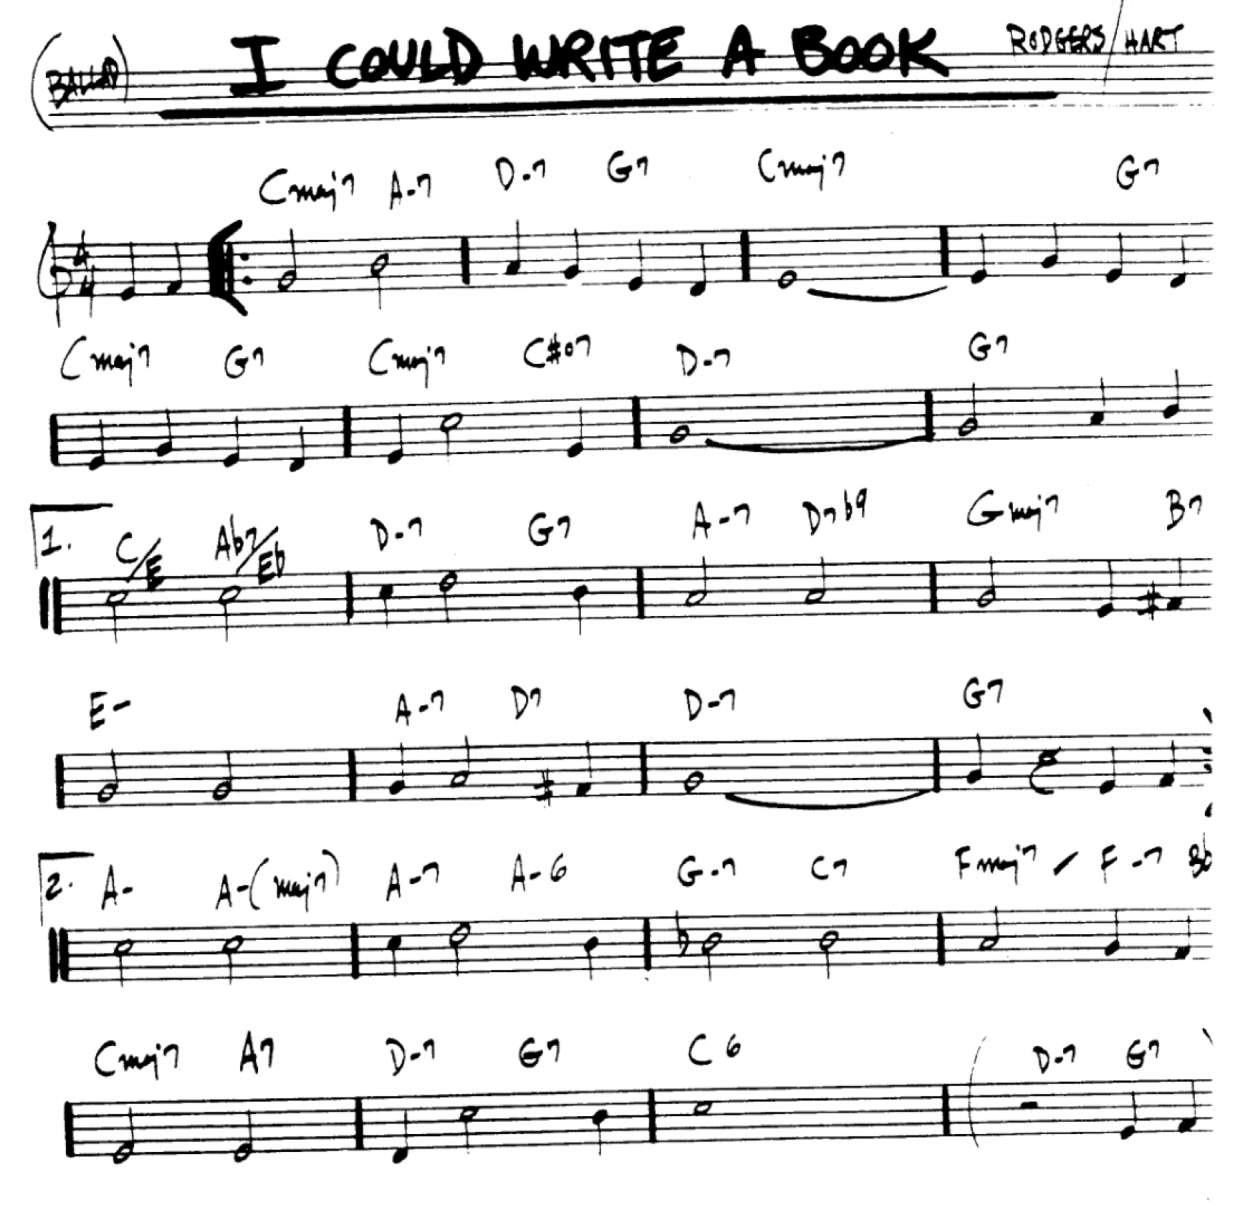 (BALLAD) I COULD WRITE A BOOK RODGERS/HART
Cmaj7 A-7 D-7 G7 Cmaj7 G7
4
4
Cmaj7 G7 Cmaj7 C#o7 D-7 G7
1. C/E Ab7/Eb D-7 G7 A-7 D7b9 Gmaj7 B7
E- A-7 D7 D-7 G7
2. A- A-(maj7) A-7 A-6 G-7 C7 Fmaj7 / F-7 Bb
Cmaj7 A7 D-7 G7 C6 ( D-7 G7 )